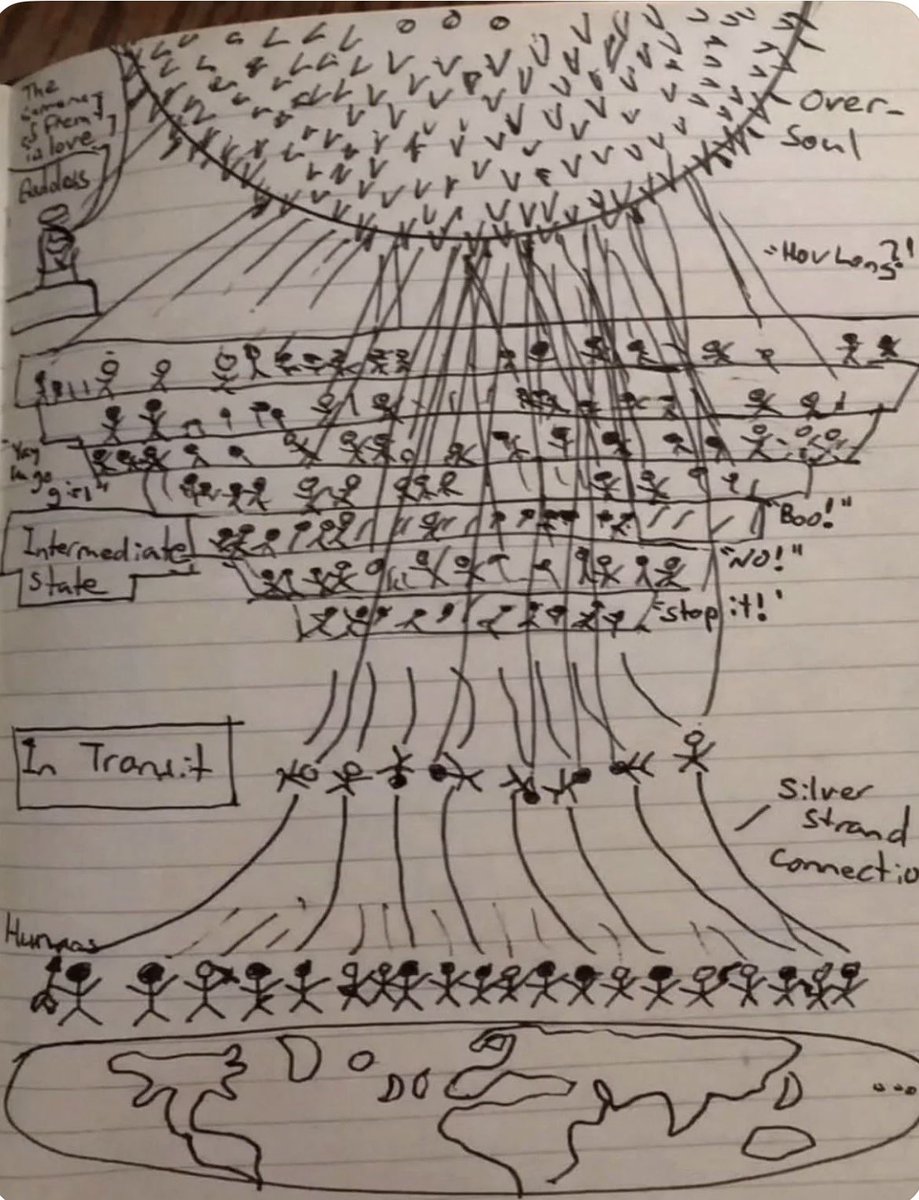 The
in love
Goddess
Over-
Soul
"How Long?!"
"Yay
girl"
"Boo!"
Intermediate
State
"NO!"
"Stop it!"
In Transit
Silver
Strand
Connectio
Humans